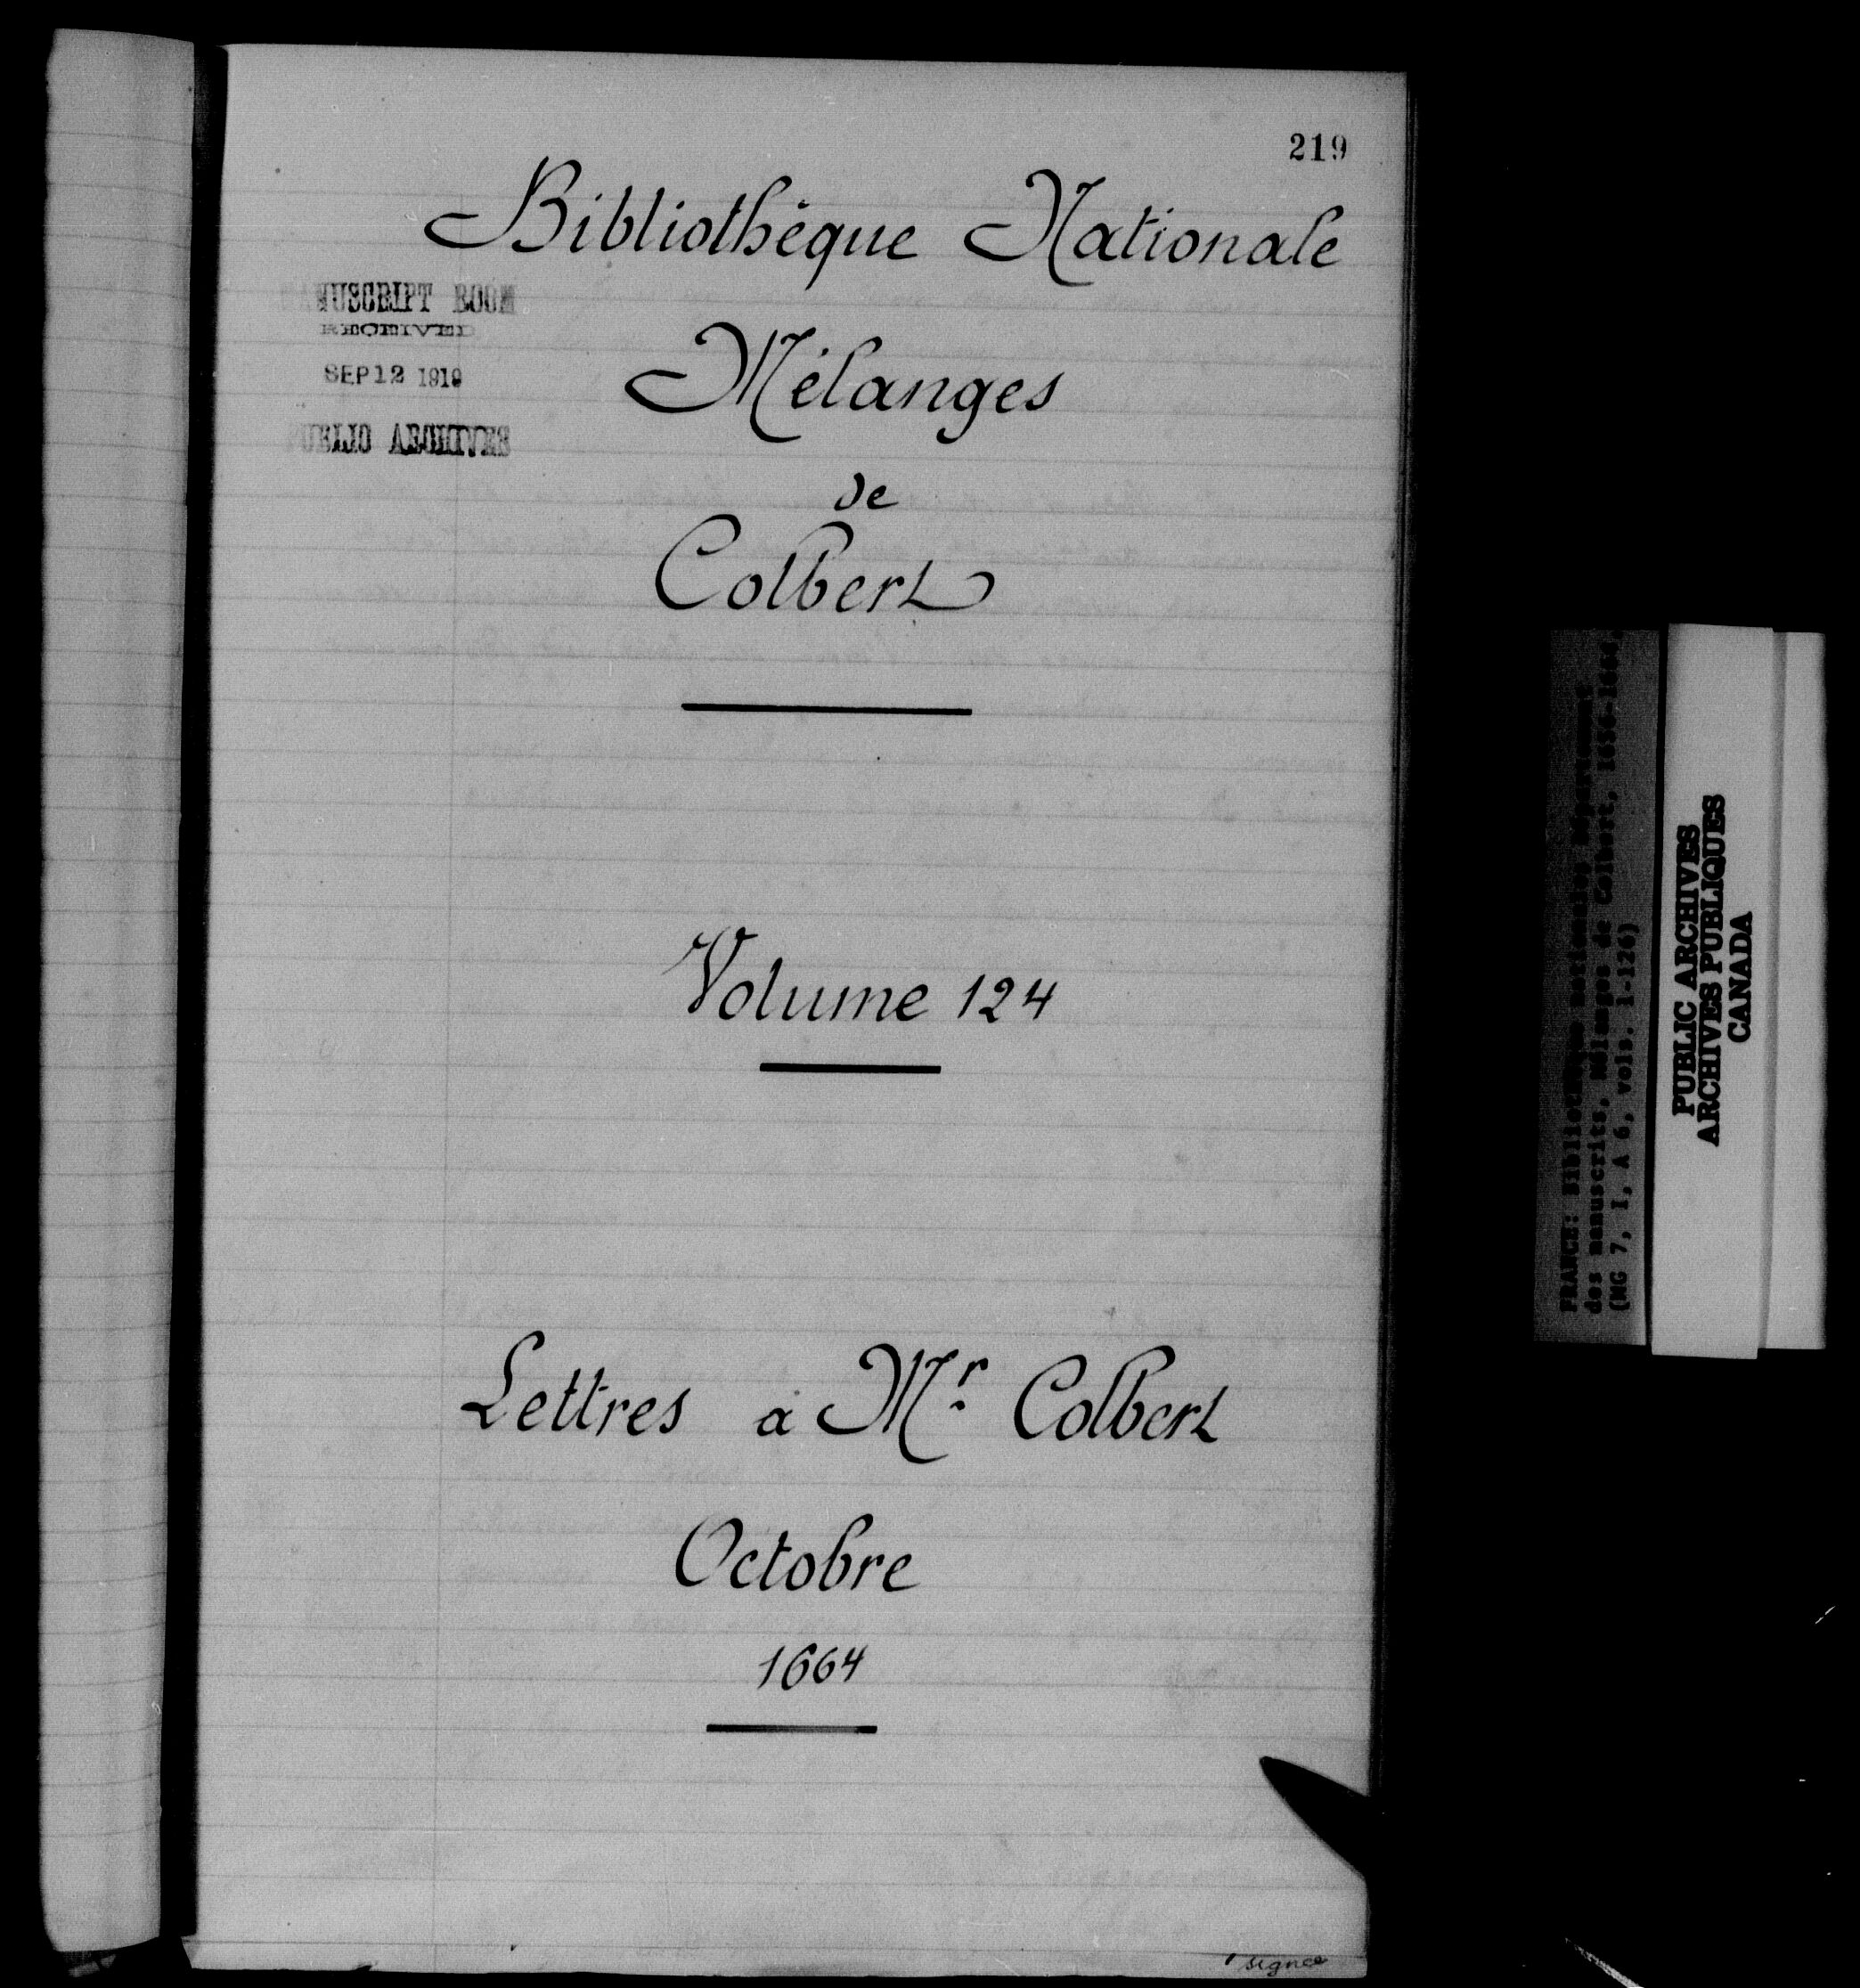 219
Bibliothèque Nationale
MANUSCRIPT ROOM
RECEIVED
SEP 12 1919
PUBLIC ARCHIVES
Mélanges
de
Colbert
Volume 124
Lettres a Mr. Colbert
Octobre
1664
signée
FRANCE: Bibliothèque nationale, Département
des manuscrits, Mélanges de Colbert, 1656-1664
(MG 7, I, A 6, vols. 1-126)
PUBLIC ARCHIVES
ARCHIVES PUBLIQUES
CANADA